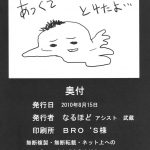 あっくて
とけたよ…
奥付
発行日 2010年8月15日
発行者 なるほど アシスト 武蔵
印刷所 BRO'S様
無断複製・無断転載・ネット上への